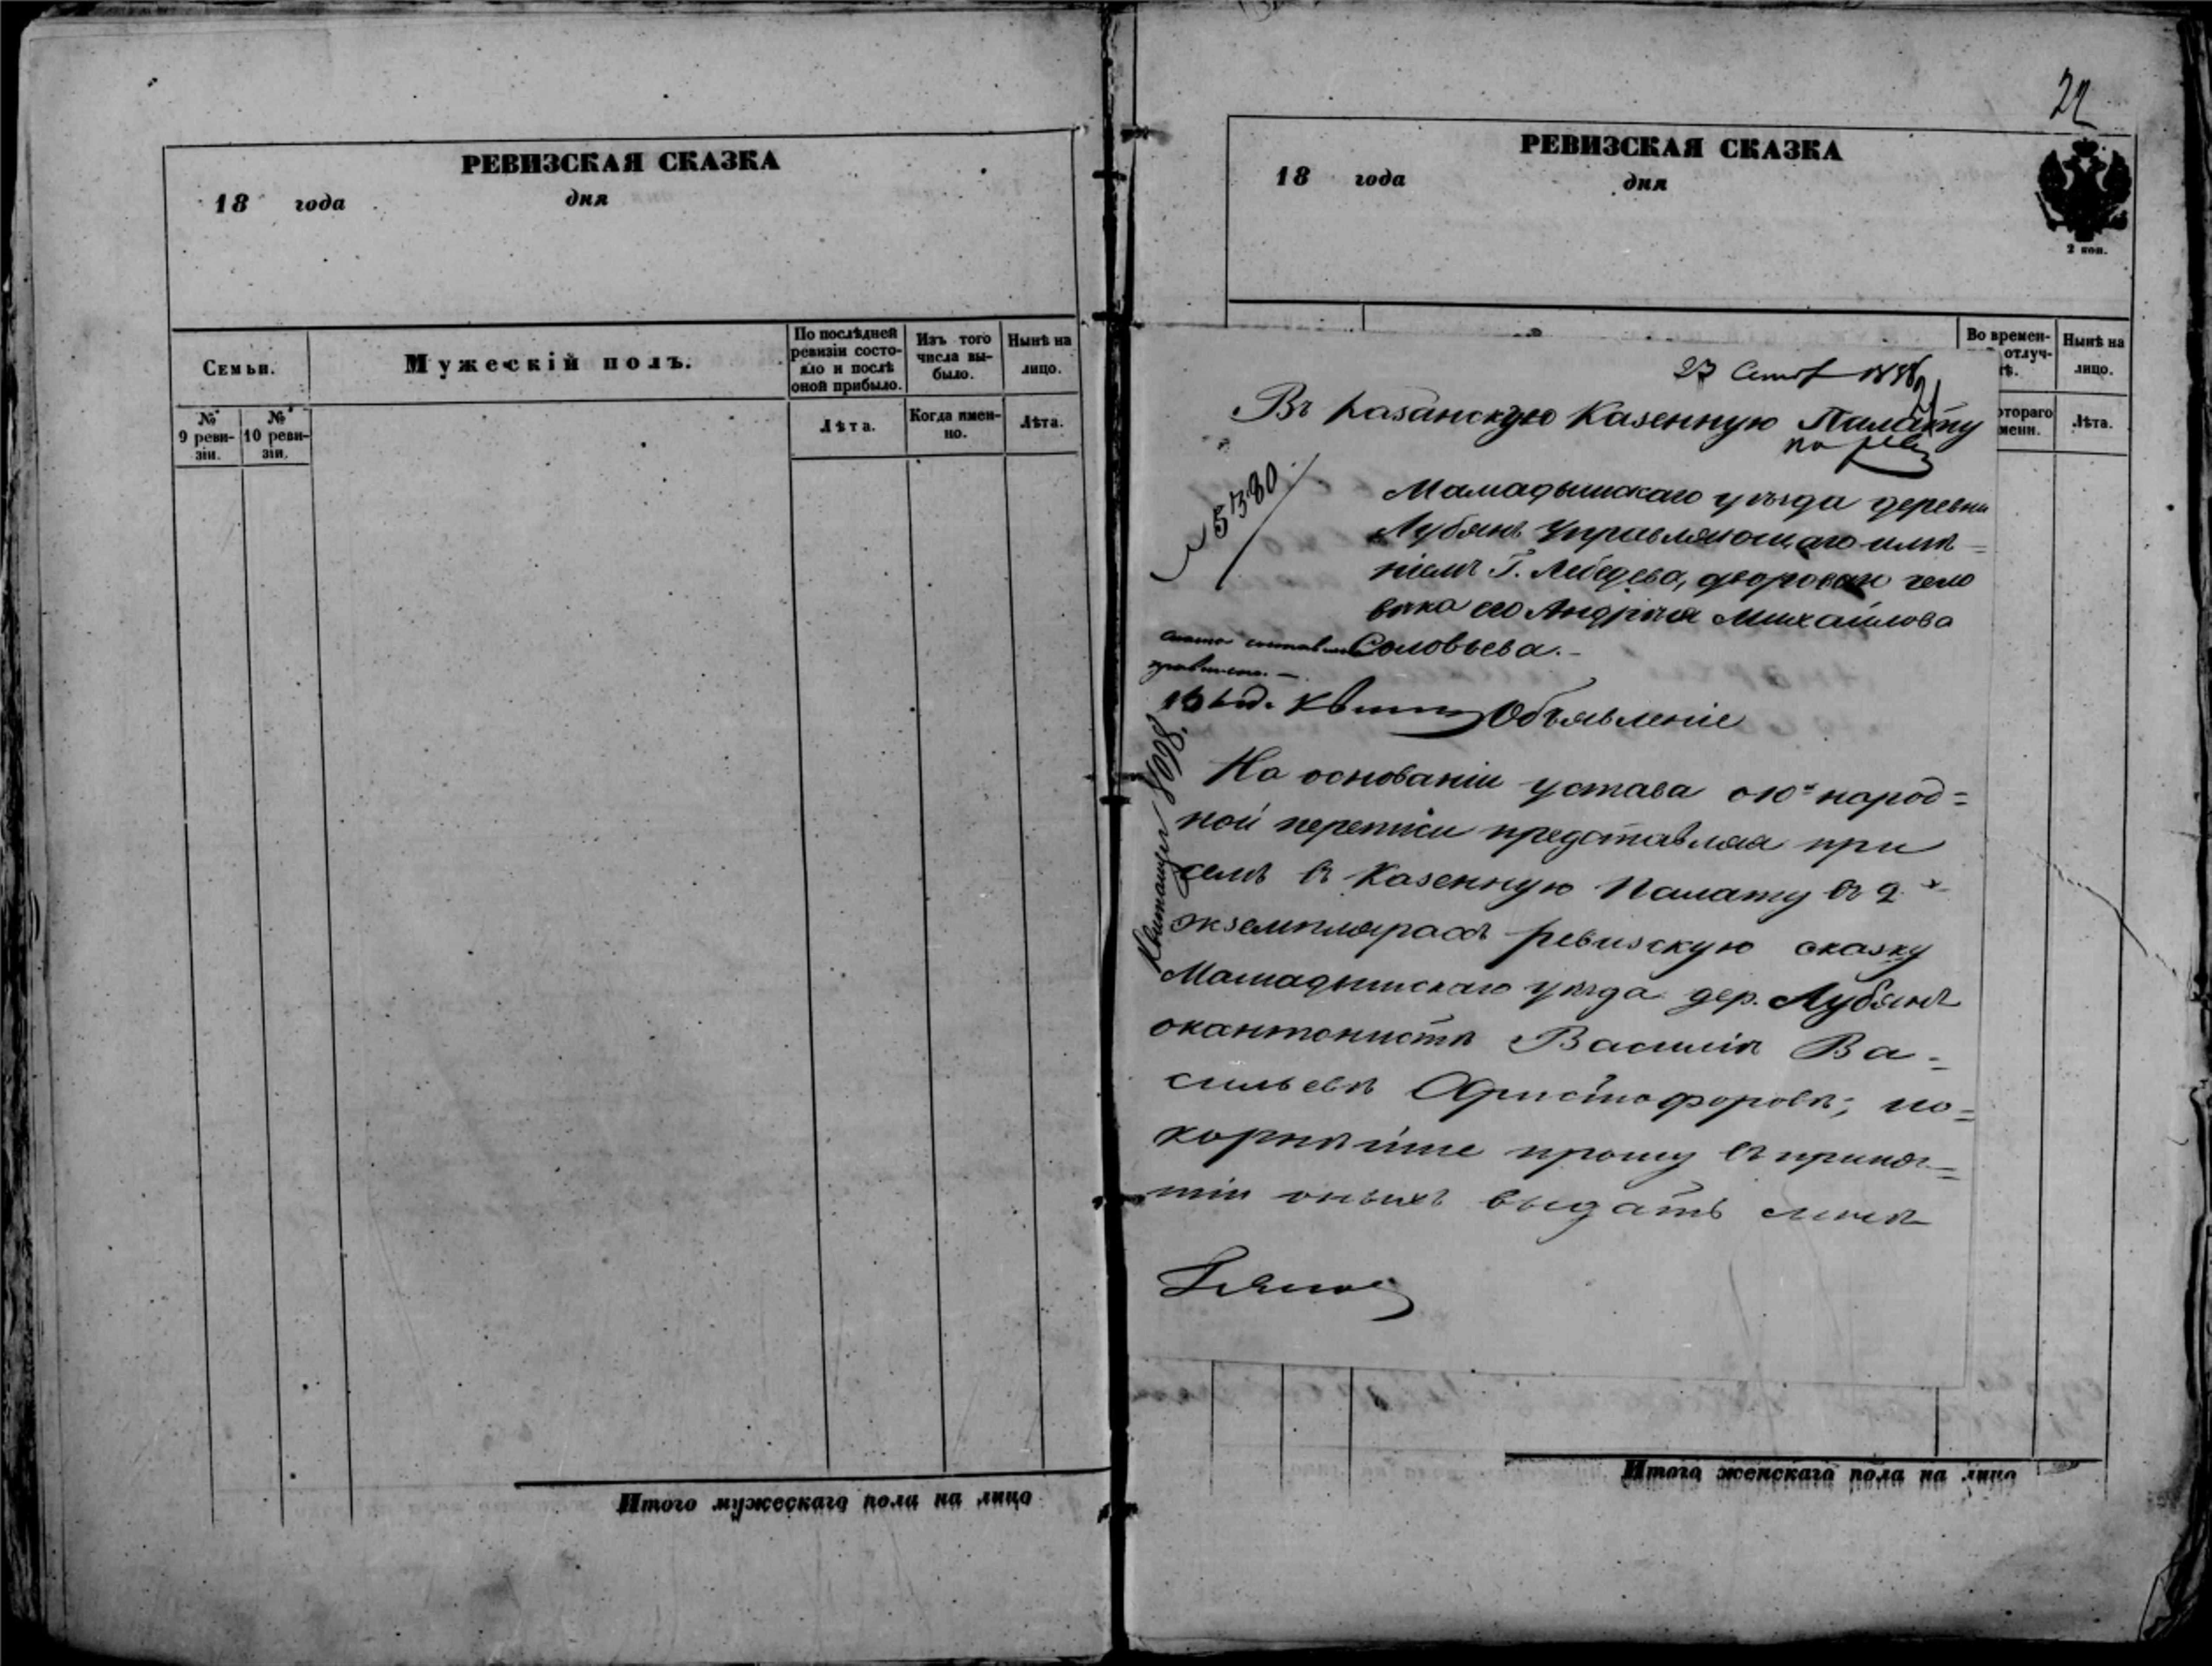 РЕВИЗСКАЯ СКАЗКА
18 года дня
Семьи.
Мужескій полъ.
По послѣдней ревизіи состояло и послѣ оной прибыло.
Изъ того числа выбыло.
Нынѣ на лицо.
№ 9 ревизіи.
№ 10 ревизіи.
Лѣта.
Когда именно.
Лѣта.
Итого мужескаго пола на лицо
22
РЕВИЗСКАЯ СКАЗКА
18 года дня
2 коп.
Во времен-
отлуч-
ѣ.
Нынѣ на лицо.
отораго
менн.
Лѣта.
23 Сентб 1858
Въ Казанскую Казенную Палату
по рев
№ 5380
Мамадышскаго уѣзда деревни
Лубянъ Управляющаго имѣ=
ніемъ Г. Лебедева, дворован чело
вѣка его Андрѣя Михайлова
Соловьева.-
Объявленіе
Квитанція 8098.
На основаніи устава о 10й народ=
ной переписи представляя при
семъ въ Казенную Палату въ 2х
экземплярахъ ревизскую сказку
Мамадышскаго уѣзда дер. Лубянъ
окантонистѣ Василіѣ Ва=
сильевѣ Христофоровѣ; по=
корнѣйше прошу въ приня=
тіи оныхъ выдать мнѣ
Итого женскаго пола на лицо